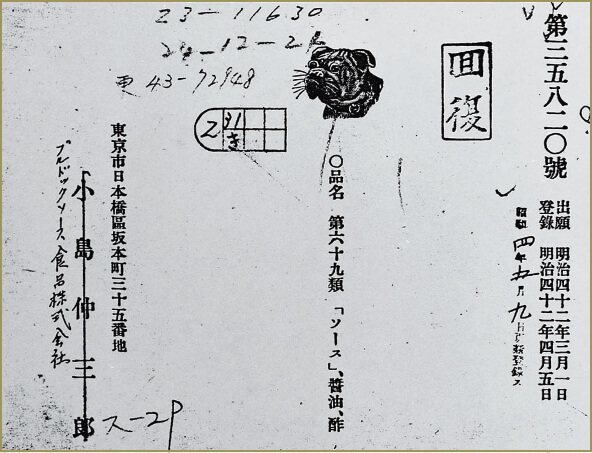 第三五八二〇號
出願 明治四十二年三月一日
登錄 明治四十二年四月五日
昭和四年五月九日
回復
〇品名 第六十九類 「ソース」、醬油、酢
23-11630
更 43-72948
東京市日本橋區坂本町三十五番地
小島仲三郎
ブルドックソース食品株式会社
ス-29